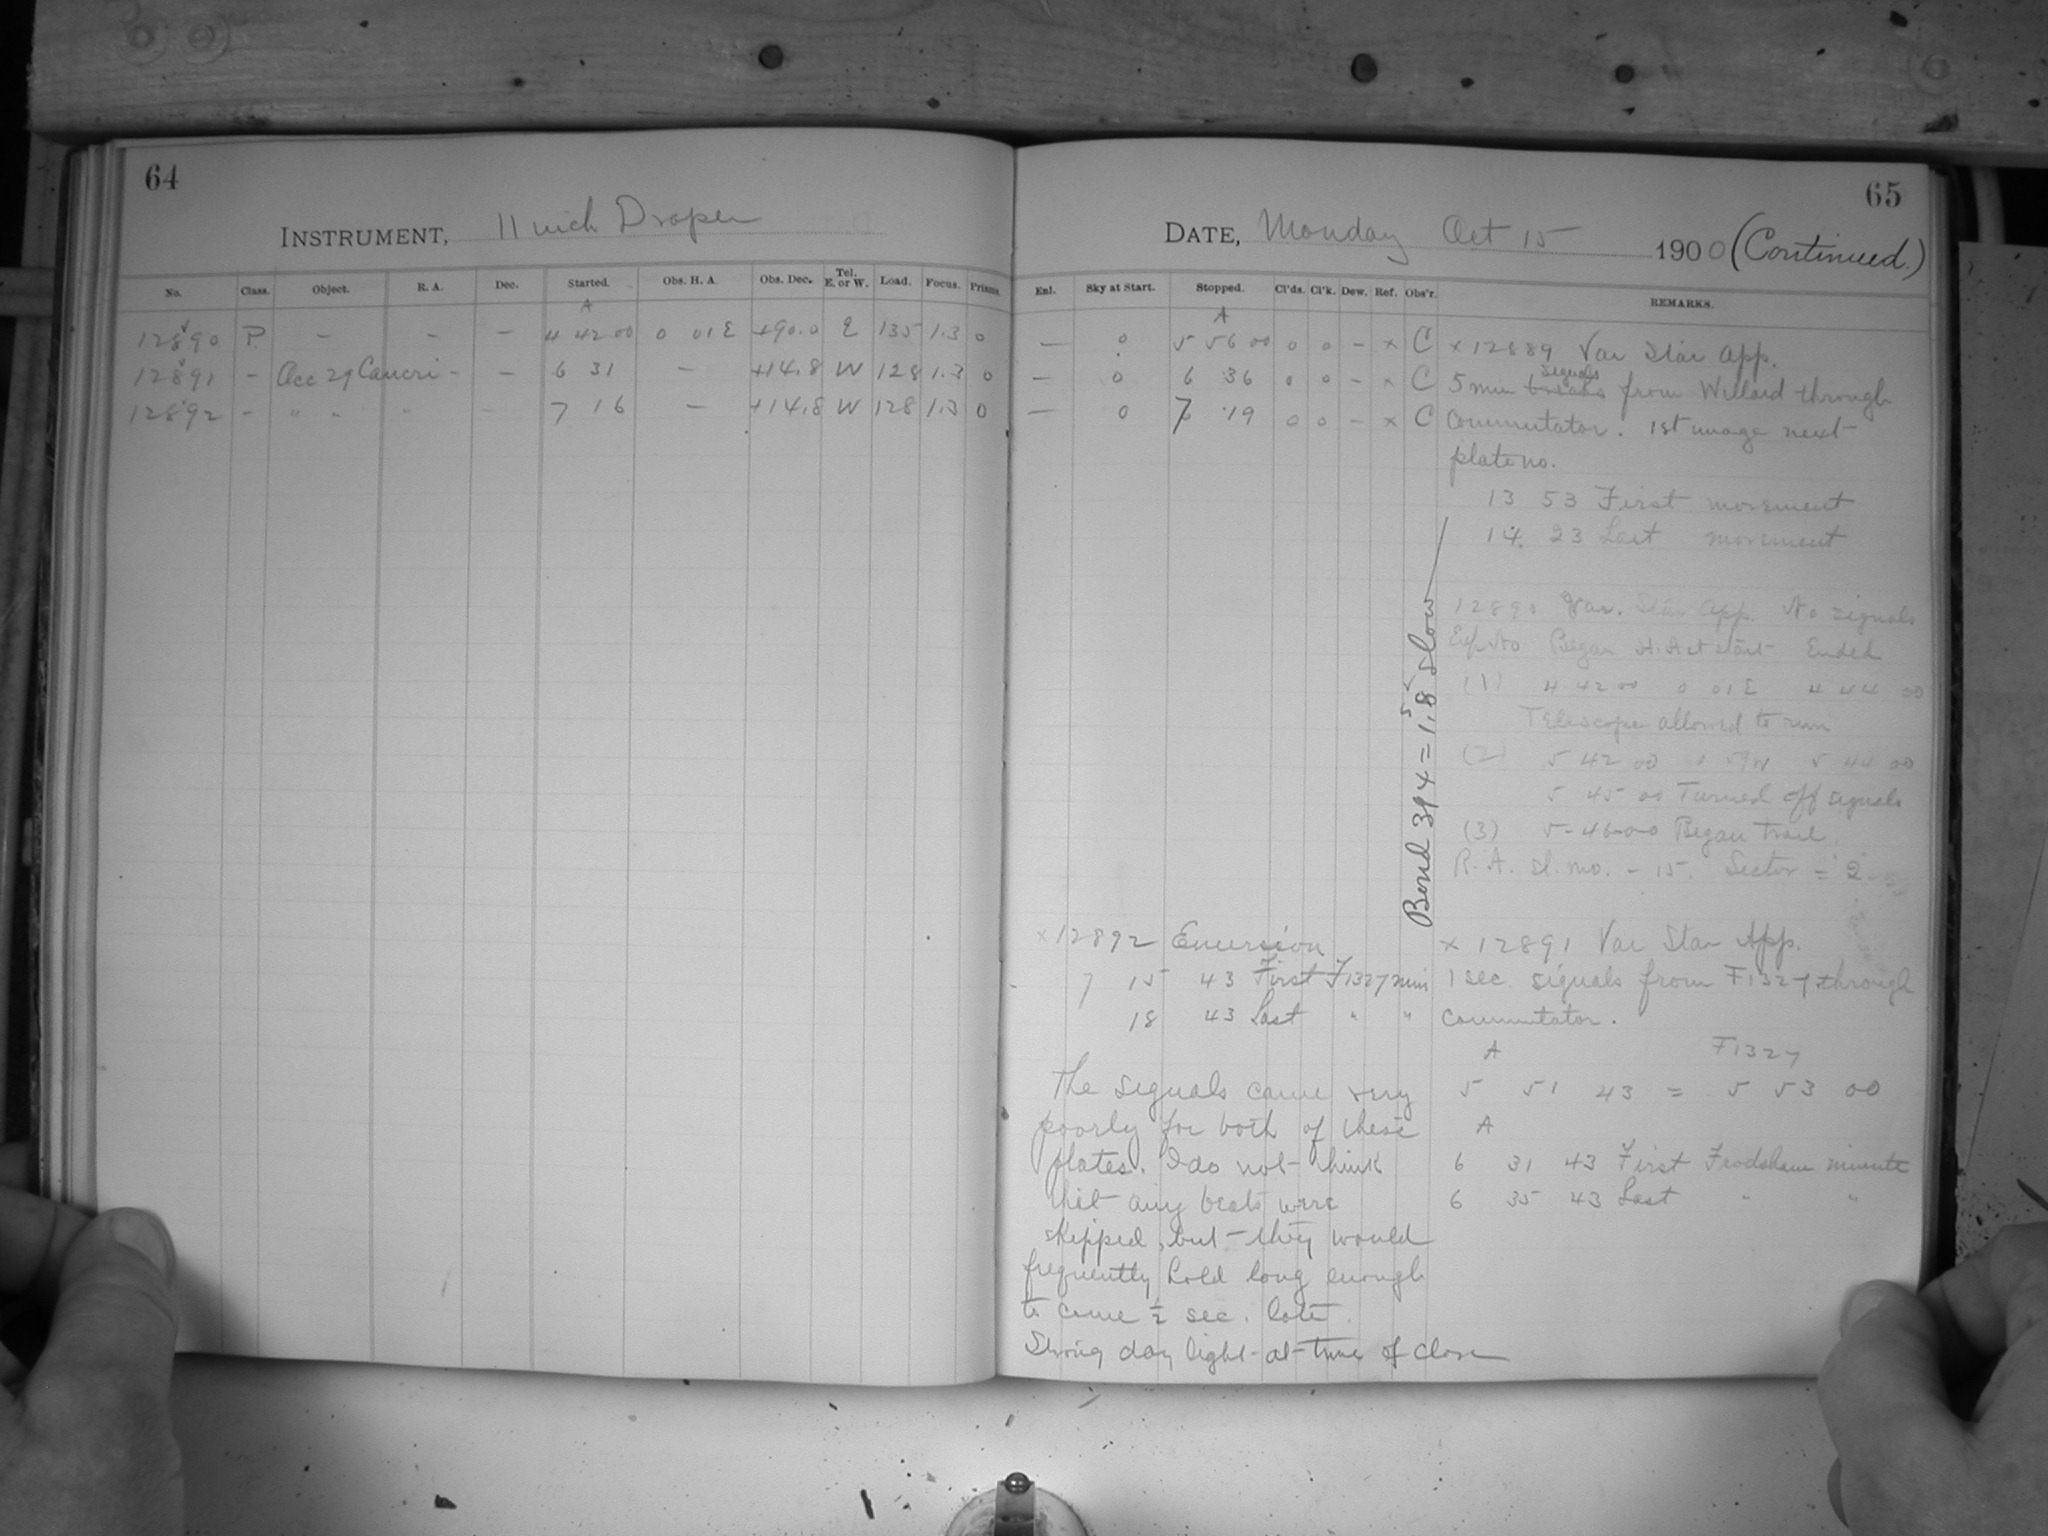 64
INSTRUMENT, 11 inch Draper
No. Class. Object. R. A. Dec. Started. Obs. H. A. Obs. Dec. Tel. E. or W. Load. Focus. Prisms.
A
12890 P. — — — 4 42 00 0 01 E +90.0 E 135 1.3 0
12891 — Occ 29 Cancri — — 6 31 — +14.8 W 128 1.3 0
12892 — " " " — 7 16 — +14.8 W 128 1.3 0
65
DATE, Monday Oct 15 1900 (Continued.)
Enl. Sky at Start. Stopped. Cl'ds. Cl'k. Dew. Ref. Obs'r. REMARKS.
A
— 0 5 56 00 0 0 – x C
— 0 6 36 0 0 – x C
— 0 7 19 0 0 – x C
x 12889 Var Star App.
signals
5 min breaks from Willard through
Commutator. 1st image next
plate no.
13 53 First movement
14. 23 Last movement
Bond 394 = 1.8 slow
12890 Var. Star App. No signals
Exp No Began H.A at start Ended
(1) 4 42 00 0 01 E 4 44 00
Telescope allowed to run
(2) 5 42 00 59 W 5 44 00
5 45 00 Turned off signals
(3) 5-46-00 Began trail.
R.A. sl. mo. – 15. Sector = 2
x 12892 Emersion
7 15 43 First F1327 min
18 43 Last " "
The signals came very
poorly for both of these
plates. I do not think
that any beats were
skipped, but they would
frequently hold long enough
to come ½ sec. late.
Strong day light at time of close
x 12891 Var Star App.
1 sec. signals from F1327 through
commutator.
A F1327
5 51 43 = 5 53 00
A
6 31 43 First Frodsham minute
6 35 43 Last " "